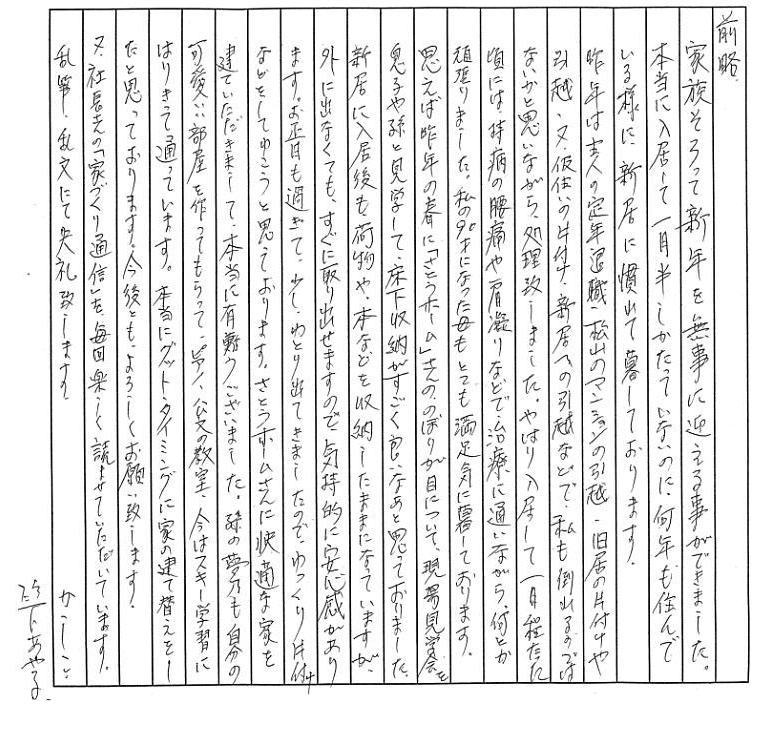 前略
家族そろって新年を無事に迎える事ができました。
本当に入居して一月半しかたっていないのに、何年も住んで
いる様に、新居に慣れて暮しております。
昨年は主人の定年退職・松山のマンションの引越・旧居の片付けや
引越・又、仮住いの片付け・新居への引越などで、私も倒れるのでは
ないかと思いながら、処理致しました。やはり入居して一月程たった
頃には持病の腰痛や肩凝りなどで治療に通いながら、何とか
頑張りました。私の90才になった母もとても満足気に暮しております。
思えば昨年の春に「さとうホーム」さんののぼりが目について、現場見学会を
息子や孫と見学して、床下収納がすごく良いなあと思っておりました。
新居に入居後も荷物や、本などを収納したままになっていますが、
外に出なくても、すぐに取り出せますので、気持的に安心感があり
ます。お正月も過ぎて、少し、ゆとり出てきましたので、ゆっくり片付け
などをしてゆこうと思っております。さとうホームさんに快適な家を
建ていただきまして、本当に有難うございました。孫の夢乃も自分の
可愛いい部屋を作ってもらって、ピアノ、公文の教室、今はスキー学習に
はりきって通っています。本当にグットタイミングに家の建て替えをし
たと思っております。今後とも、よろしくお願い致します。
又、社長さんの「家づくり通信」を、毎回楽しく読ませていただいています。
乱筆・乱文にて失礼致します。
かしこ
下あや子